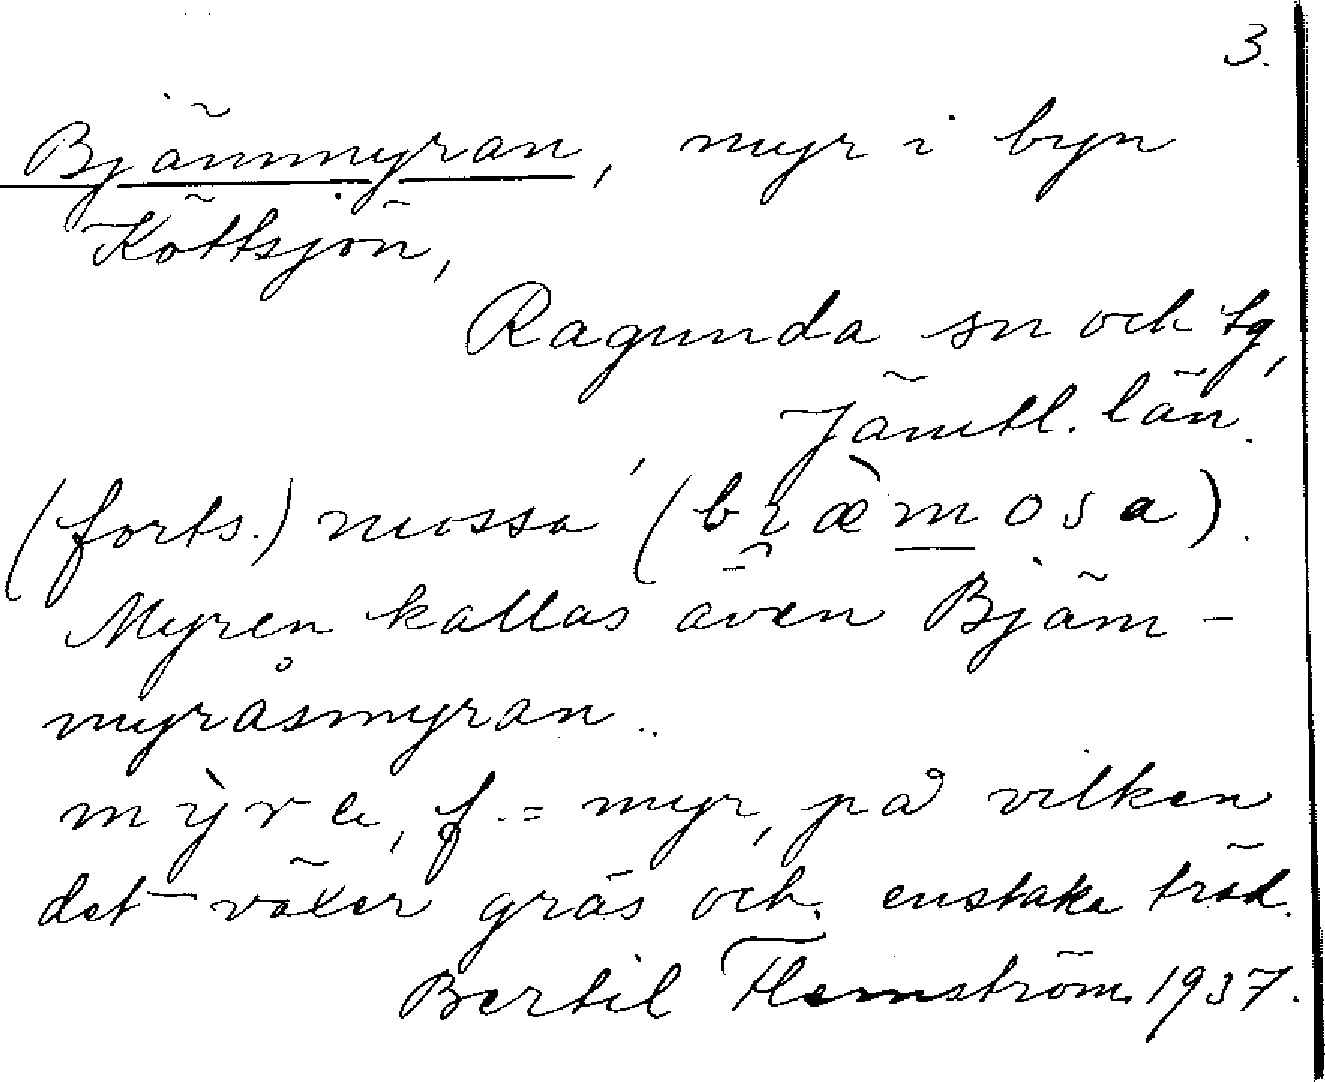 3.
Bjämmyran, myr i byn
Köttsjön,
Ragunda sn och tg,
Jämtl. län.
(forts.) mossa (bræ̀mosa).
Myren kallas även Bjäm-
myråsmyran.
mỳre, f. = myr, på vilken
det växer gräs och enstaka träd.
Bertil Flemström 1937.